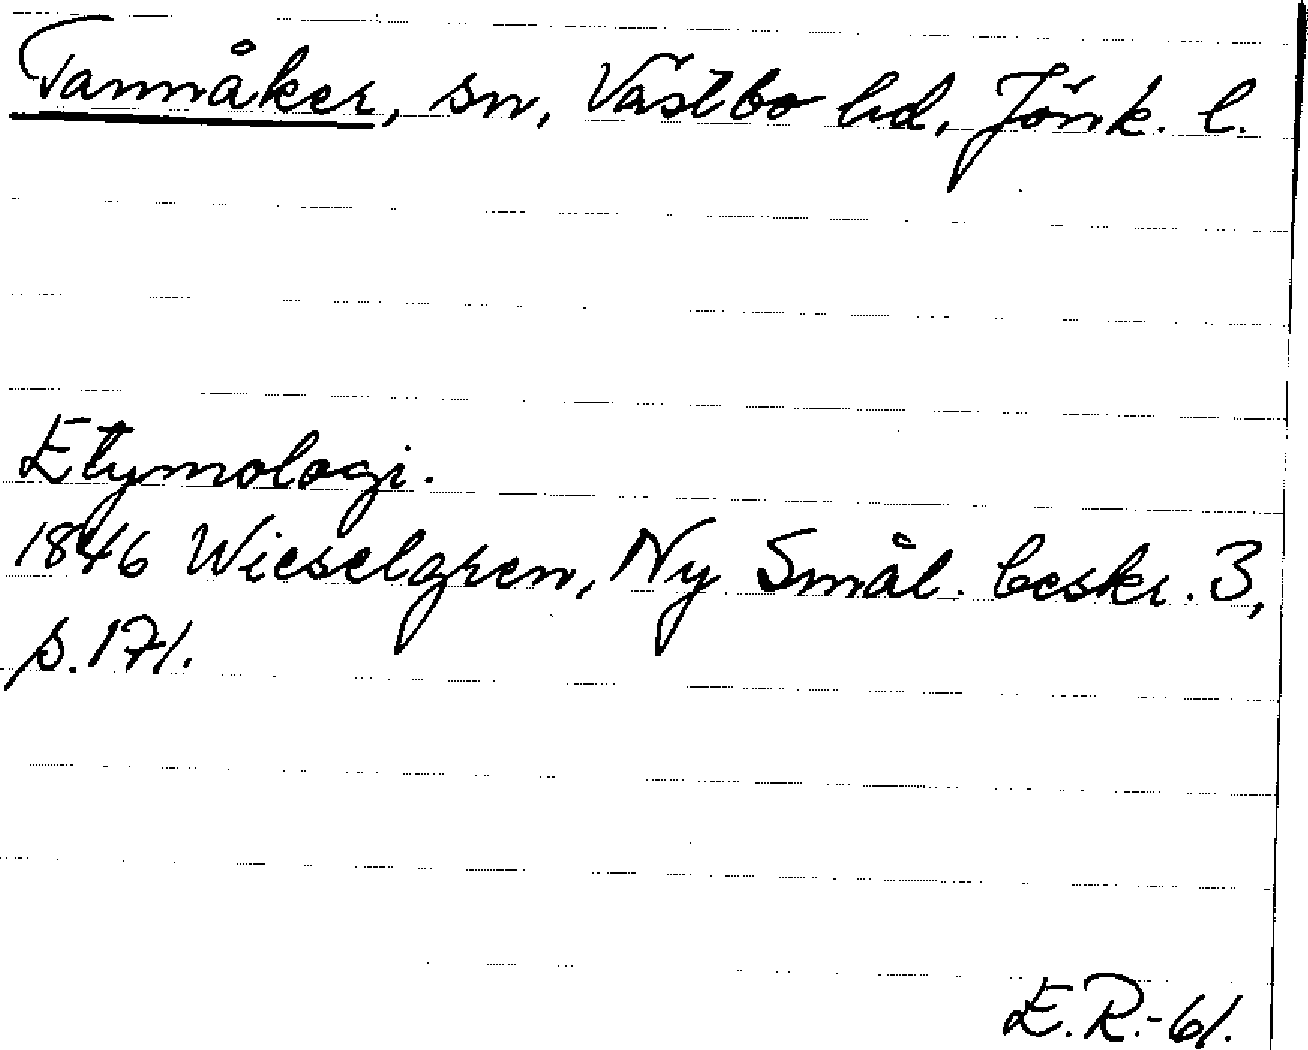 Tannåker, sn, Västbo hd, Jönk. l.
Etymologi.
1846 Wieselgren, Ny Smål. beskr. 3,
s. 171.
E.R.-61.